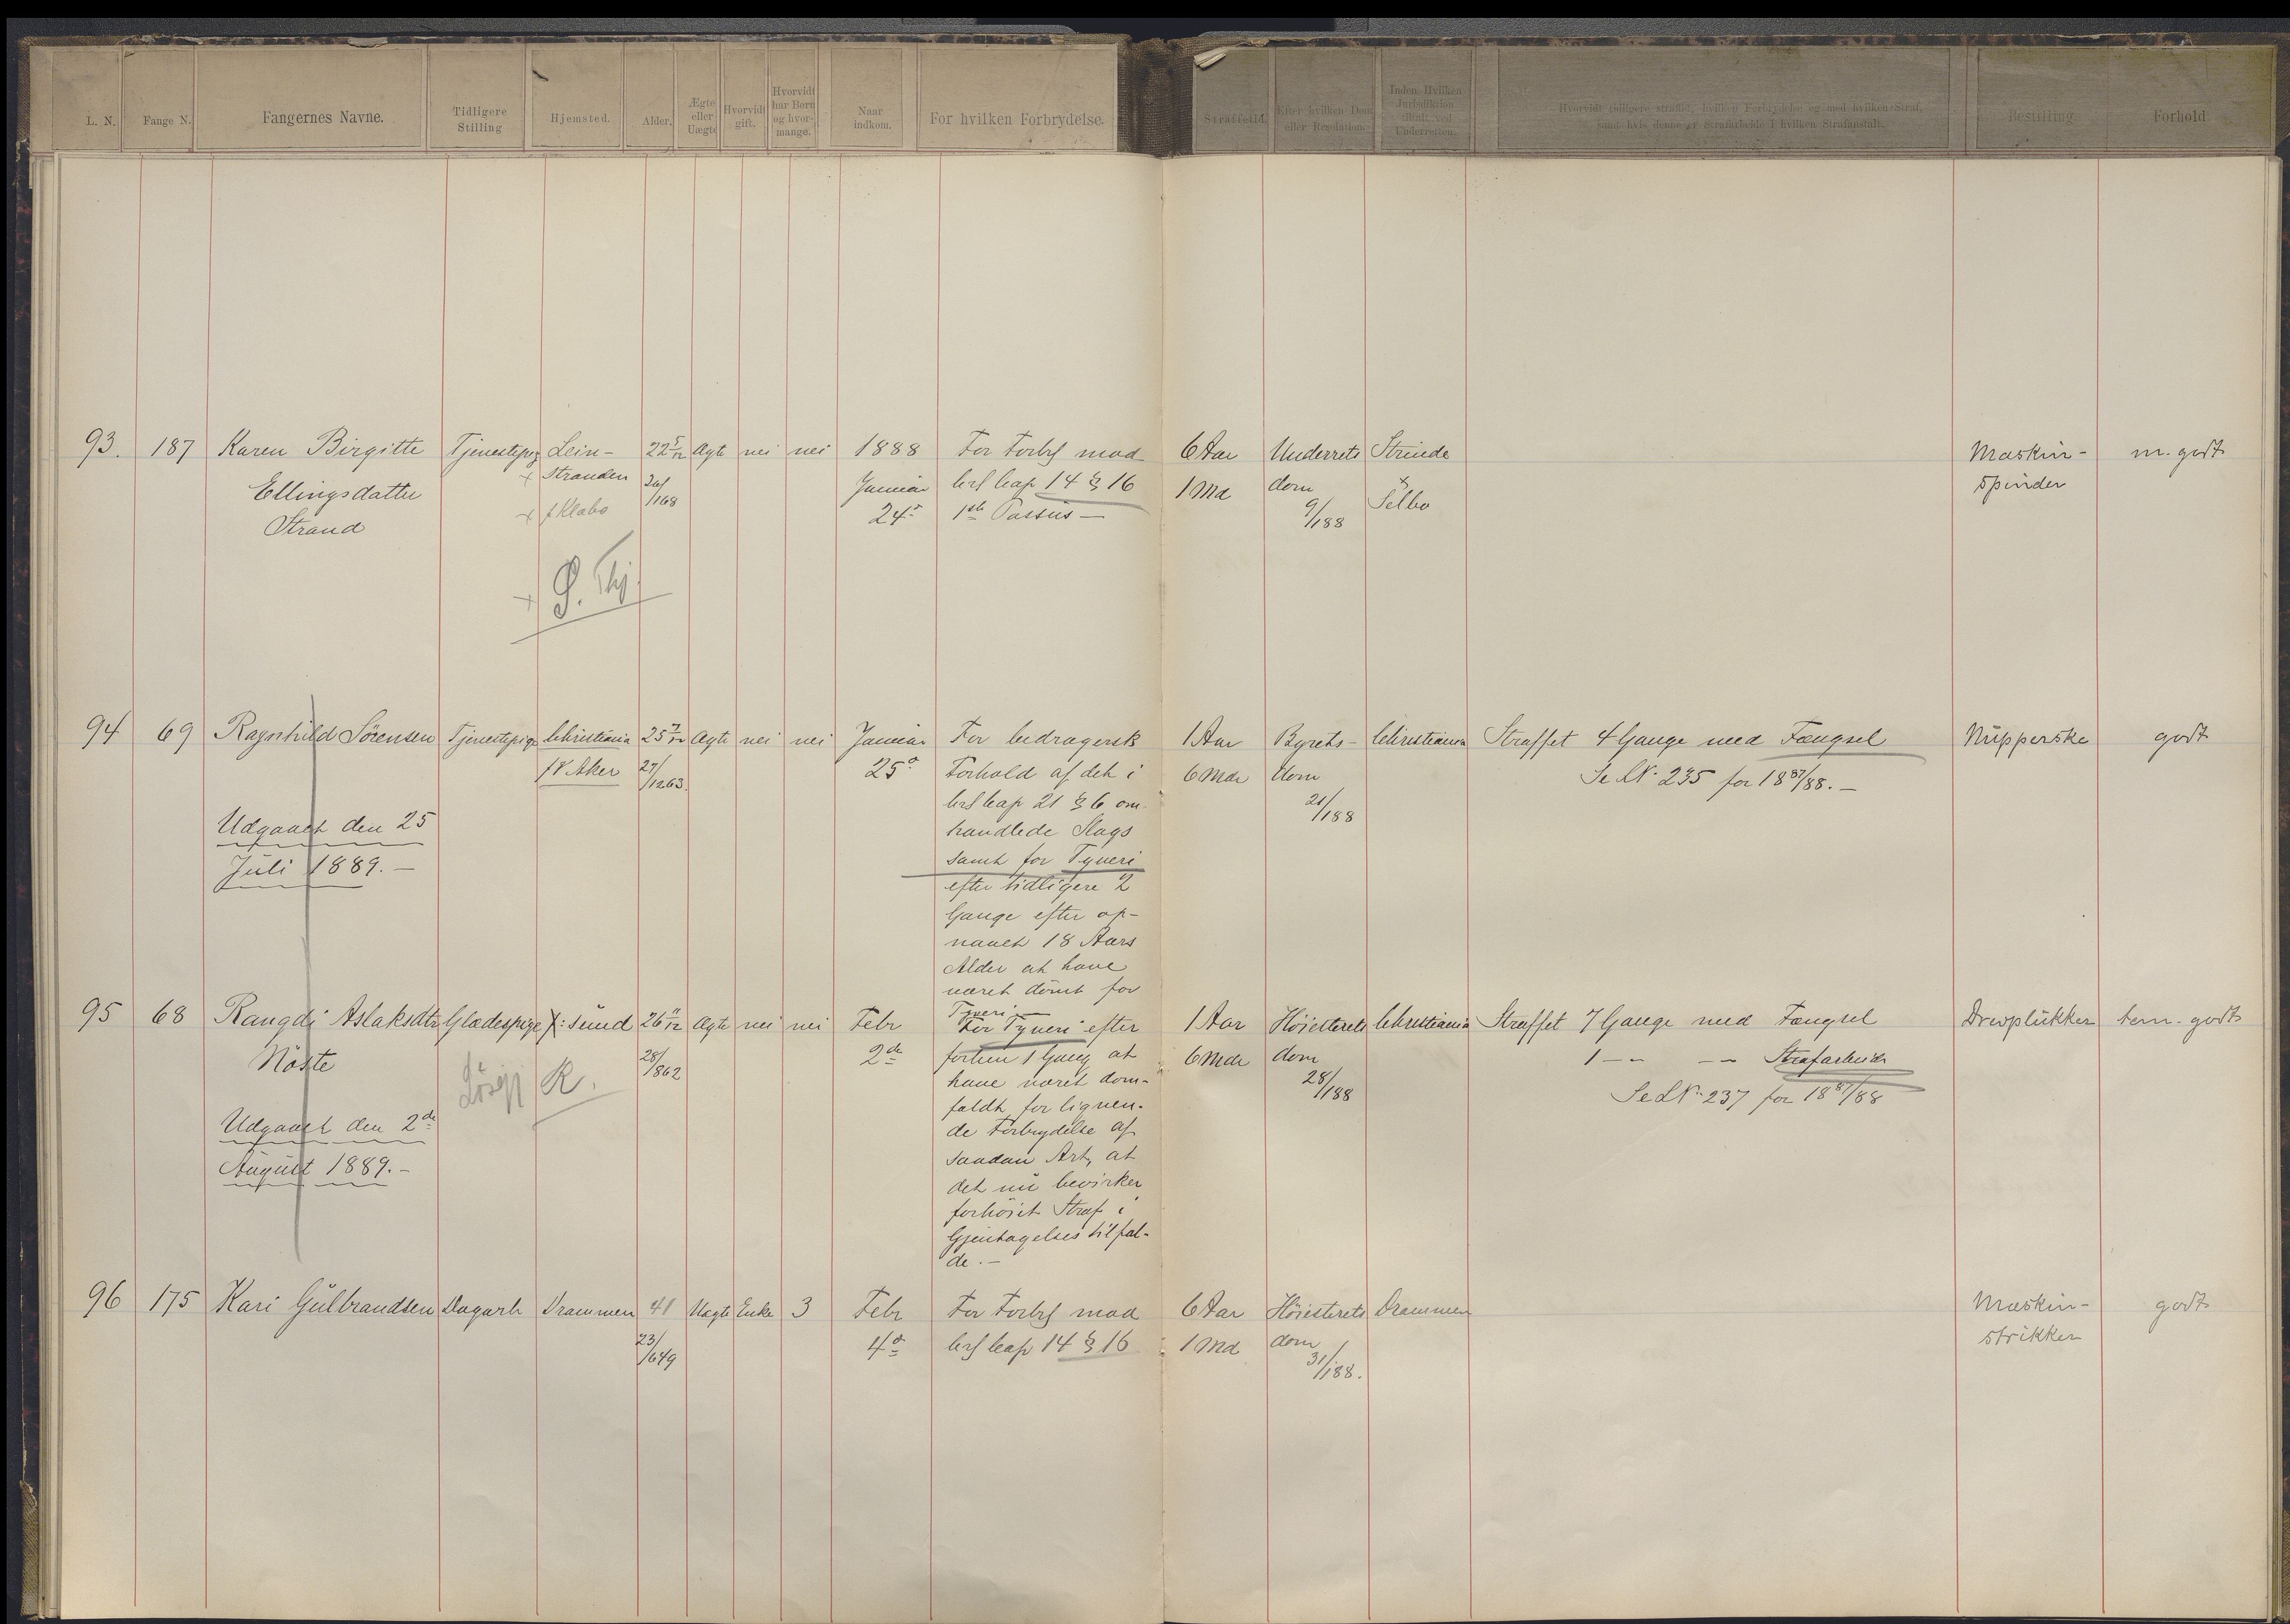 L. N. Fange N. Fangernes Navne. Tidligere Stilling Hjemsted. Alder. Ægte eller Uægte Hvorvidt gift. Hvorvidt har Børn og hvor-mange. Naar indkom. For hvilken Forbrydelse. Straffetid. Efter hvilken Dom eller Resolution. Inden Hvilken Jurisdiktion tiltalt ved Underretten. Hvorvidt tidligere straffet, hvilken Forbrydelse og med hvilken Straf, samt hvis denne er Strafarbeide i hvilken Strafanstalt. Bestilling Forhold
93. 187 Karen Birgitte Tjenestepig Lein- 22 5/12 Ægte nei nei 1888 For Forbr mod 6 Aar Underrets Strinde Maskin- m. godt
Ellingsdatter + Stranden 26/168 Januar Crl Cap 14 § 16 1 Md dom + Selbo spinder
Strand + f Klæbo 24de 1ste Passus — 9/188
+ S. Thj.
94 69 Ragnhild Sörensen Tjenestepige Christiania 25 7/12 Ægte nei nei Januar For bedragersk 1 Aar Byrets- Christiania Straffet 4 Gange med Fængsel Nupperske godt
f V Aker 27/1263. 25de Forhold af det i 6 Mdr dom Se LN. 235 for 18 87/88. —
Crl Cap 21 § 6 om- 21/188
Udgaaet den 25 handlede Slags
Juli 1889. — samt for Tyveri
efter tidligere 2
Gange efter op-
naaet 18 Aars
Alder at have
været dömt for
Tyveri —
95 68 Rangdi Aslaksdtr Glædespige X: sund 26 11/12 Ægte nei nei Febr For Tyveri efter 1 Aar Höiesterets Christiania Straffet 7 Gange med Fængsel Drevplukker tem. godt
Nöste 28/862 2de forhen 1 Gang at 6 Mdr dom 1 — — — — Strafarbeide
R. have været dom- 28/188 Se LN. 237 for 18 87/88
fældt for lignen-
Udgaaet den 2de de Forbrydelse af
August 1889. — saadan Art, at
det nu bevirker
forhöiet Straf i
Gjentagelses tilfæl-
de. —
96 175 Kari Gulbrandsen Dagarb Drammen 41 Uægte Enke 3 Febr For Forbr mod 6 Aar Höiesterets Drammen Maskin- godt
23/649 4de Crl Cap 14 § 16 1 Md dom strikker
31/188.